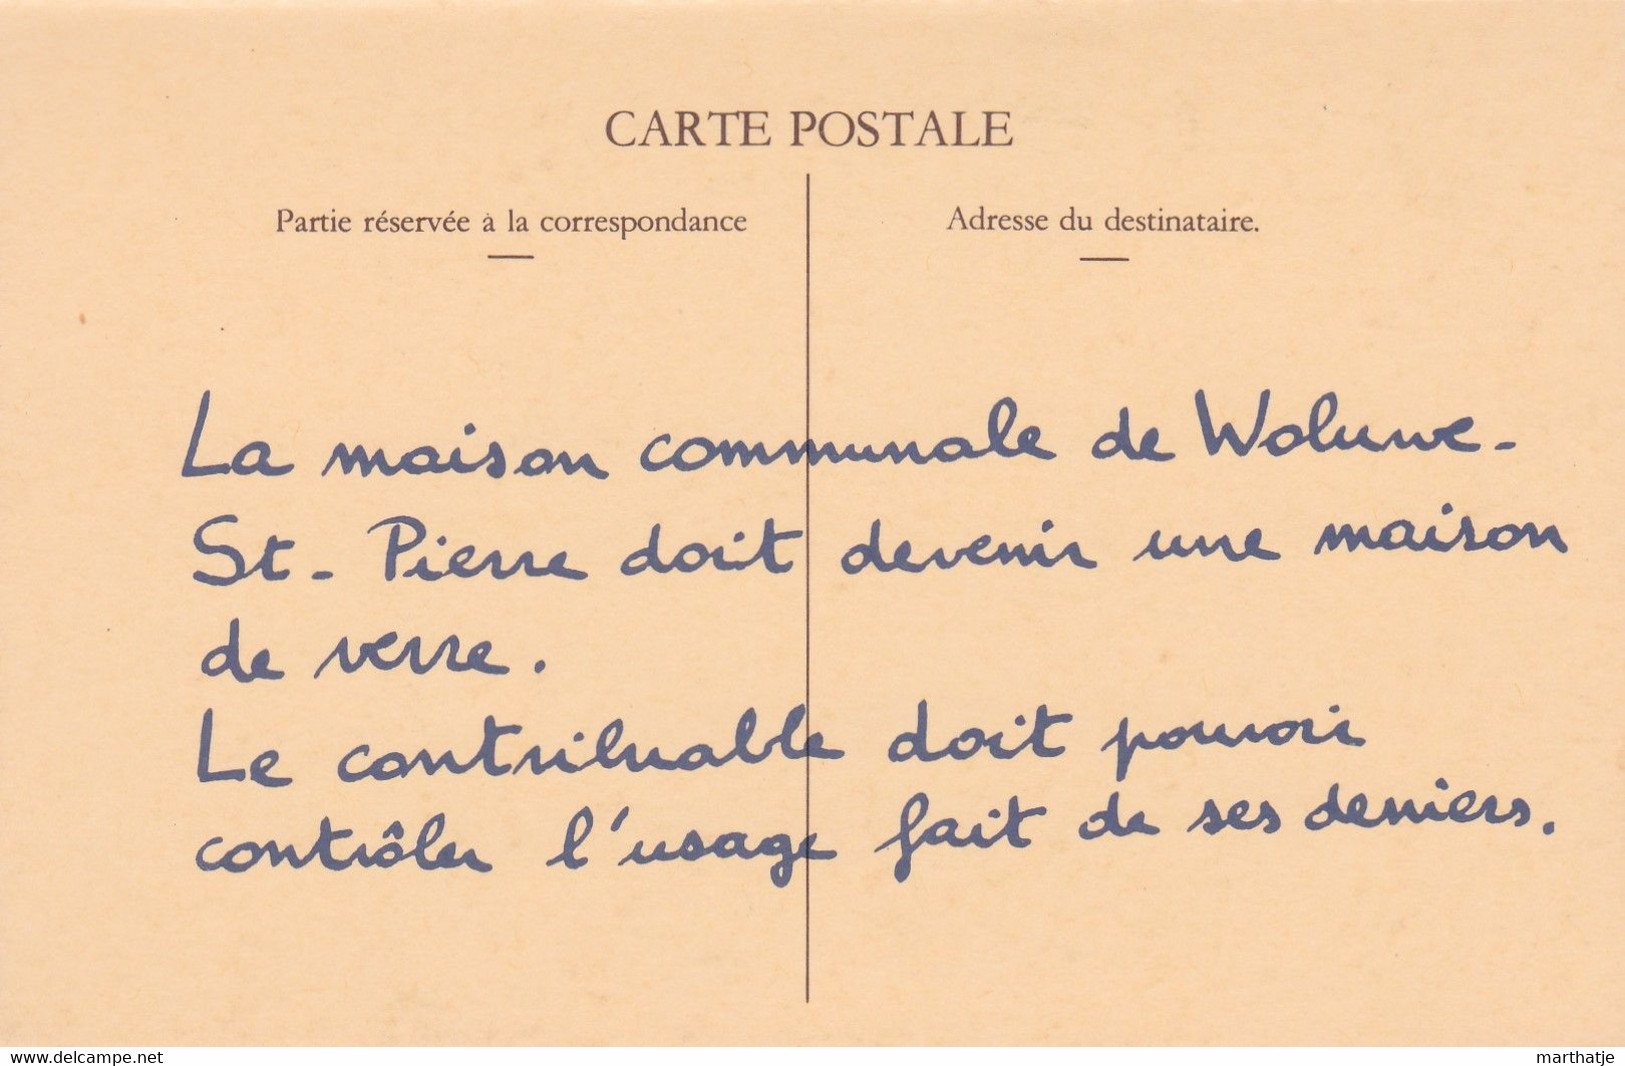 CARTE POSTALE
Partie réservée à la correspondance
Adresse du destinataire.
La maison communale de Woluwe-
St-Pierre doit devenir une maison
de verre.
Le contribuable doit pouvoir
contrôler l'usage fait de ses deniers.
www.delcampe.net
marthatje